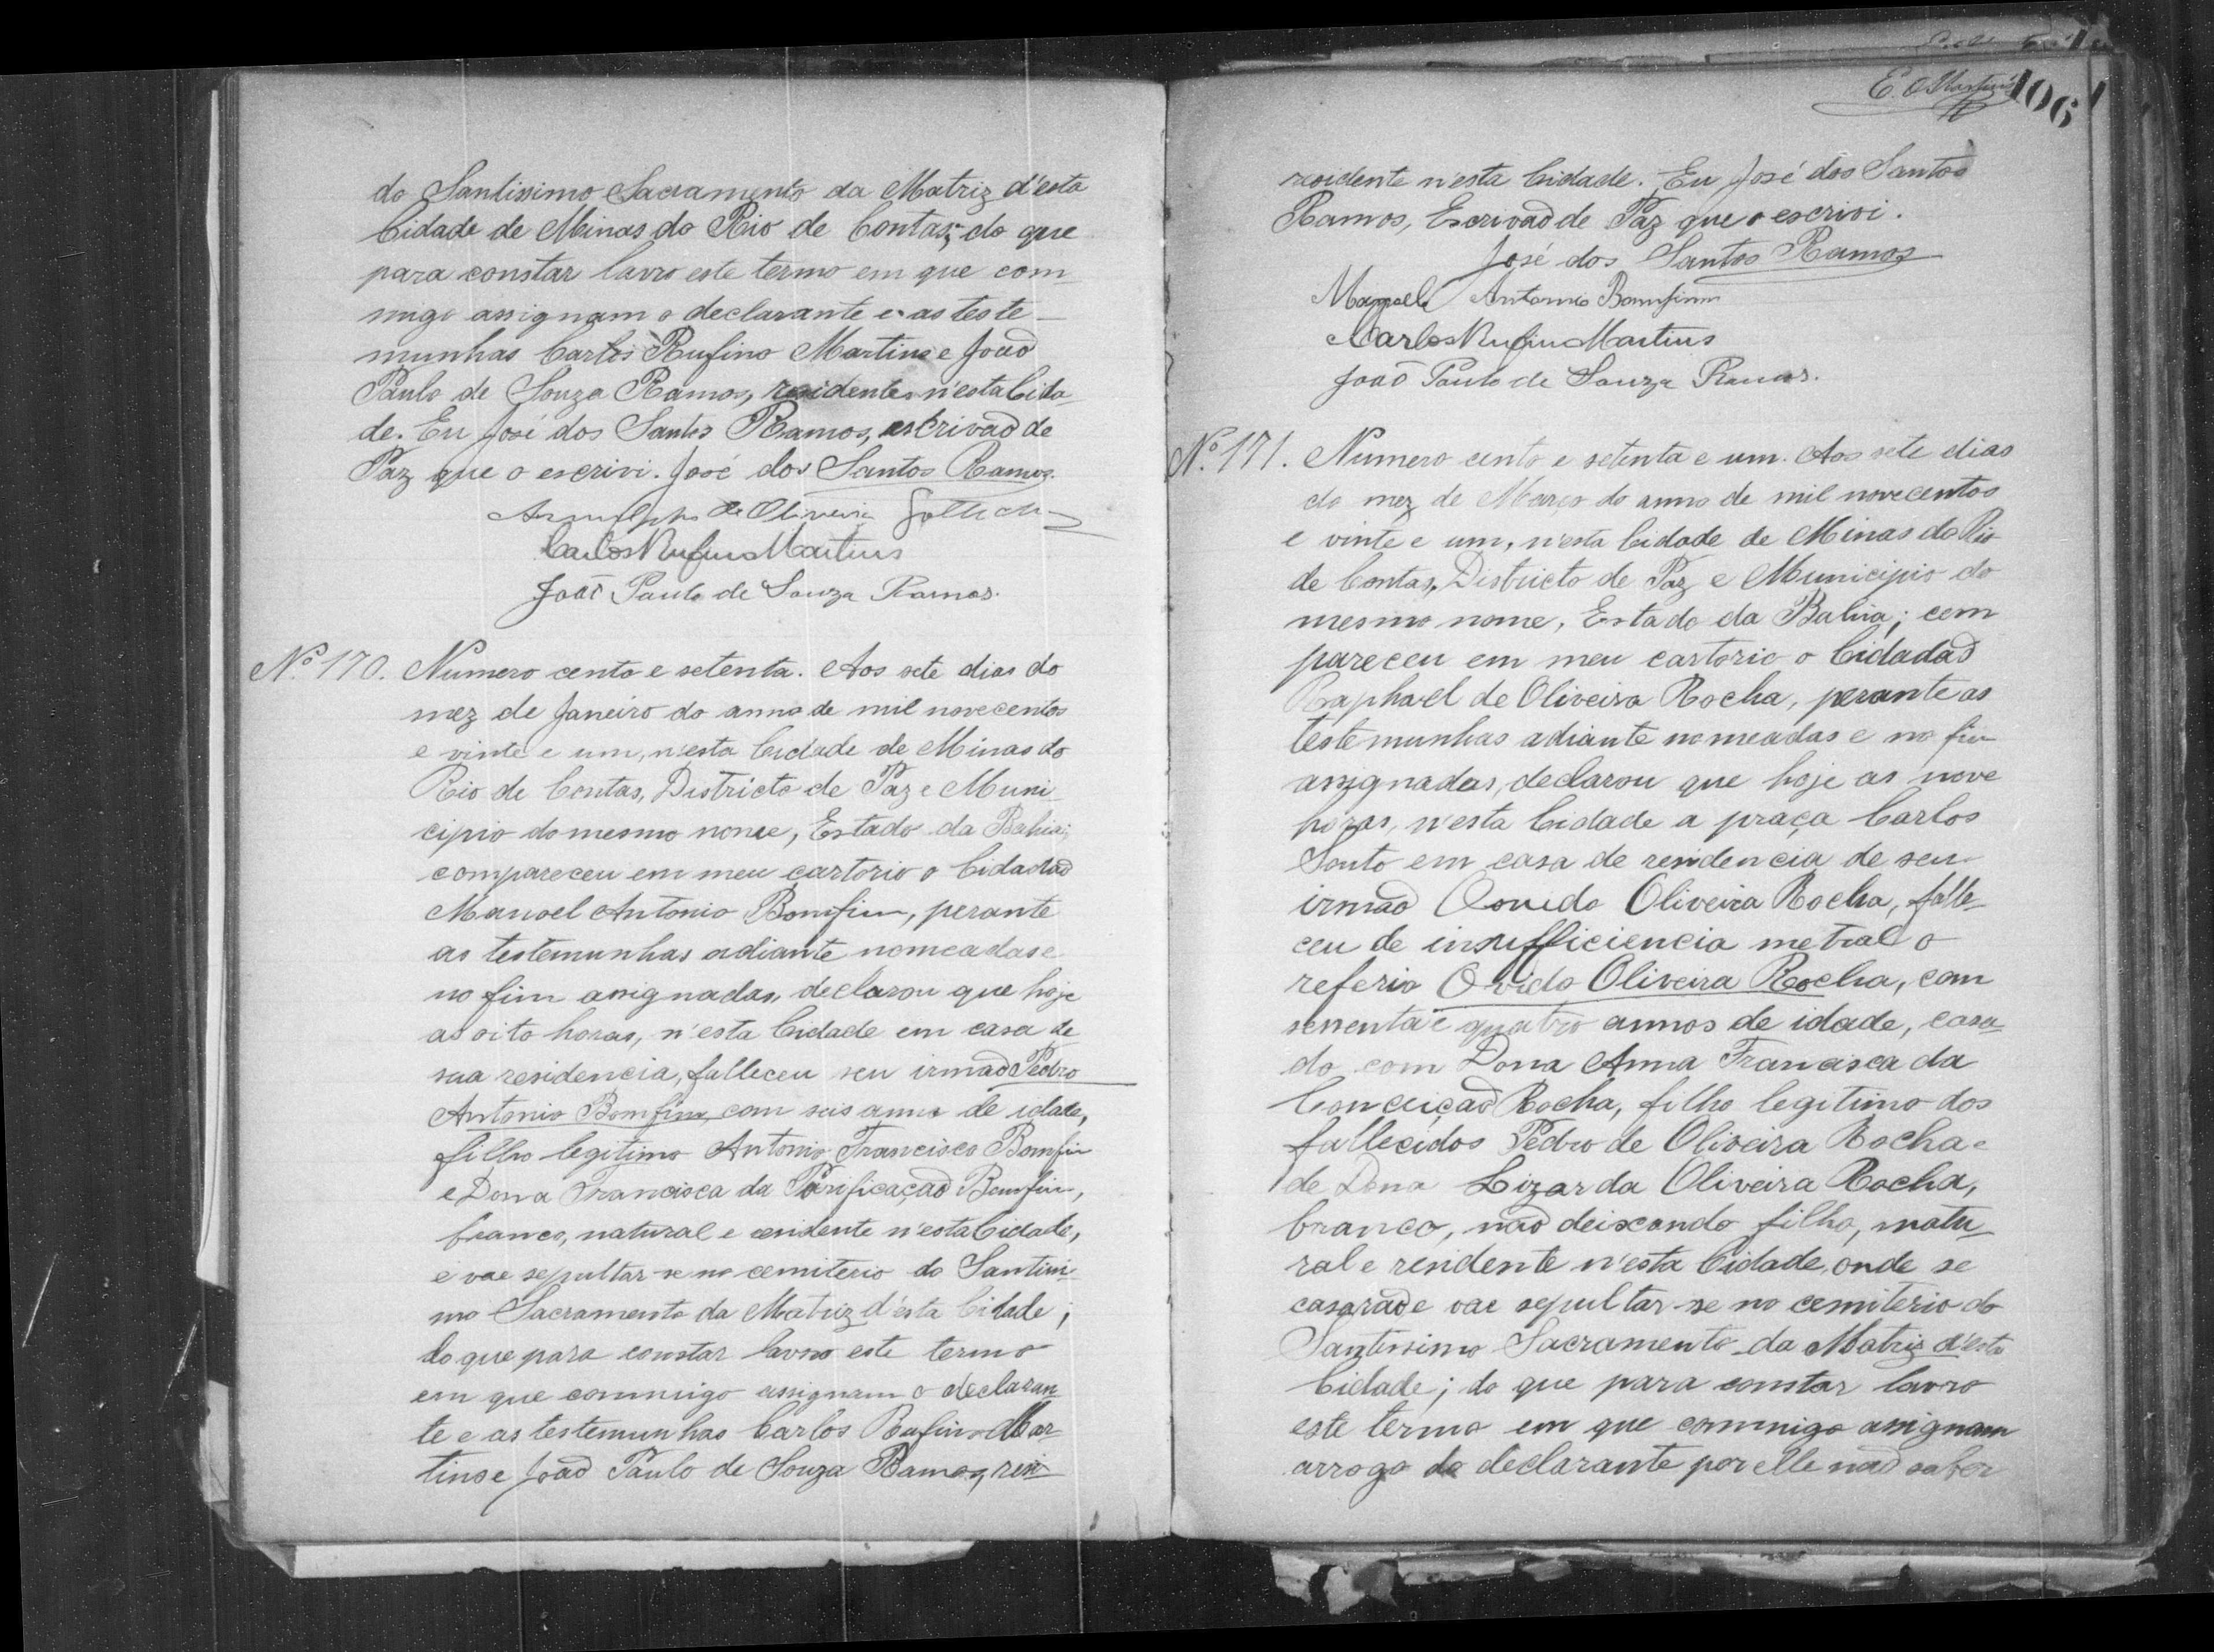 do Santissimo Sacramento da Matriz d'esta
Cidade de Minas do Rio de Contas; do que
para constar lavro este termo em que com-
migo assignam o declarante e as teste-
munhas Carlos Rufino Martins e João
Paulo de Souza Ramos, residentes n'esta Cida-
de. Eu José dos Santos Ramos, escrivão de
Paz que o escrivi. José dos Santos Ramos.
de Oliveira
Carlos Rufino Martins
João Paulo de Souza Ramos.
Nº 170. Numero cento e setenta. Aos sete dias do
mez de Janeiro do anno de mil novecentos
e vinte e um, n'esta Cidade de Minas do
Rio de Contas, Districto de Paz e Muni-
cipio do mesmo nome, Estado da Bahia;
compareceu em meu cartorio o Cidadão
Manoel Antonio Bomfim, perante
as testemunhas adiante nomeadas e
no fim assignadas, declarou que hoje
as oito horas, n'esta Cidade em casa de
sua residencia, falleceu seu irmão Pedro
Antonio Bomfim, com seis annos de idade,
filho legitimo Antonio Francisco Bomfim
e Dona Francisca da Purificação Bomfim,
branco, natural e residente n'esta Cidade,
e vae sepultar-se no cemiterio do Santissi-
mo Sacramento da Matriz d'esta Cidade;
do que para constar lavro este termo
em que commigo assignam o declaran-
te e as testemunhas Carlos Rufino Mar-
tins e João Paulo de Souza Ramos, resi-
E. Martins
106
residente n'esta Cidade. Eu José dos Santos
Ramos, Escrivão de Paz que o escrivi.
José dos Santos Ramos
Manoel Antonio Bomfim
Carlos Rufino Martins
João Paulo de Souza Ramos.
Nº 171. Numero cento e setenta e um. Aos sete dias
do mez de Março do anno de mil novecentos
e vinte e um, n'esta Cidade de Minas do Rio
de Contas, Districto de Paz e Municipio do
mesmo nome, Estado da Bahia; com
pareceu em meu cartorio o Cidadão
Raphael de Oliveira Rocha, perante as
testemunhas adiante nomeadas e no fim
assignadas, declarou que hoje as nove
horas, n'esta Cidade a praça Carlos
Souto em casa de residencia de seu
irmão Ovido Oliveira Rocha, falle-
ceu de insufficiencia metral o
referio Ovido Oliveira Rocha, com
sessenta e quatro annos de idade, casa-
do com Dona Anna Francisca da
Conceição Rocha, filho legitimo dos
fallecidos Pedro de Oliveira Rocha e
de Dona Lizarda Oliveira Rocha,
branco, não deixando filho, natu-
ral e residente n'esta Cidade, onde se
casarão e vae sepultar-se no cemiterio do
Santissimo Sacramento da Matriz d'esta
Cidade; do que para constar lavro
este termo em que commigo assignam
arrogo do declarante por elle não saber